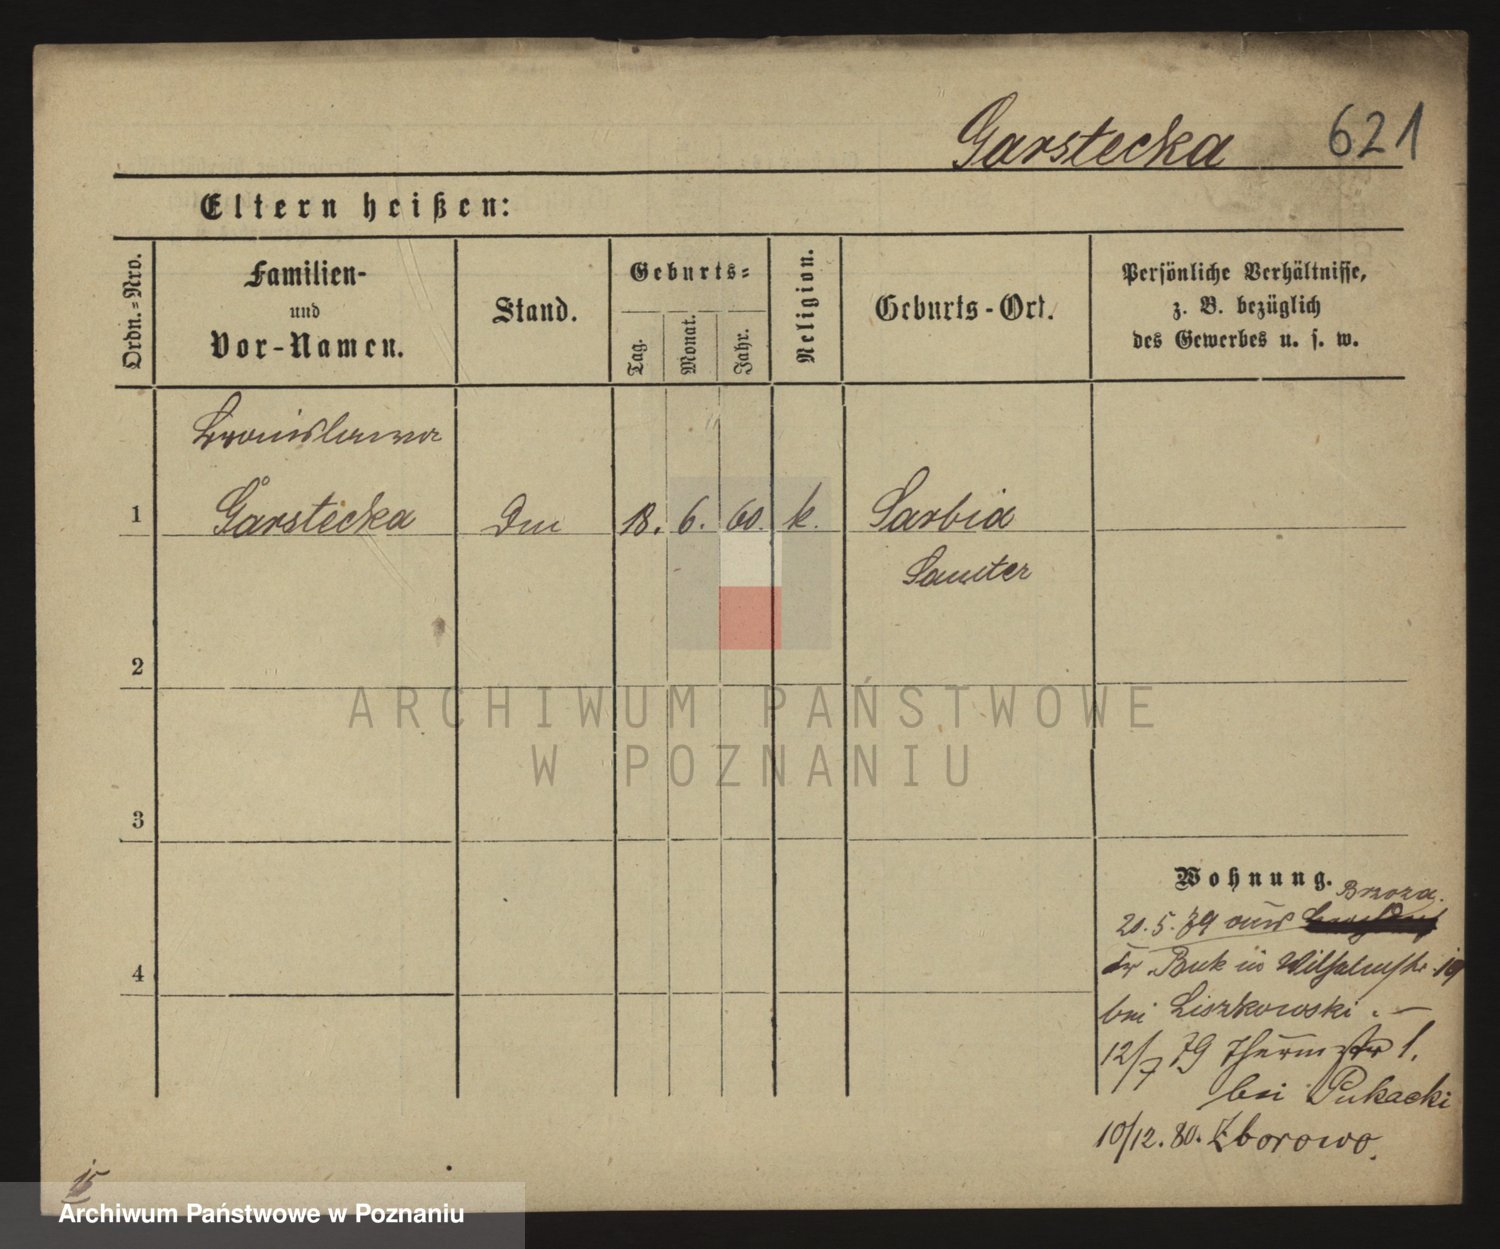 Garstecka 621
Eltern heißen:
Ordn.-Nro.
Familien-
und
Vor-Namen.
Stand.
Geburts-
Tag.
Monat.
Jahr.
Religion.
Geburts-Ort.
Persönliche Verhältnisse,
z. B. bezüglich
des Gewerbes u. s. w.
Bronislawa
1 Garstecka 18. 6. 60. k. Sarbia
Samter
2
3
4
Wohnung.
Brzoza.
20. 5. 79 aus
Kr. Buk in Wilhelmstr. 19
bei Liszkowski. —
12/7 79 Thurmstr 1.
bei Pukacki
10/12. 80. Zborowo.
15
ARCHIWUM PAŃSTWOWE
W POZNANIU
Archiwum Państwowe w Poznaniu